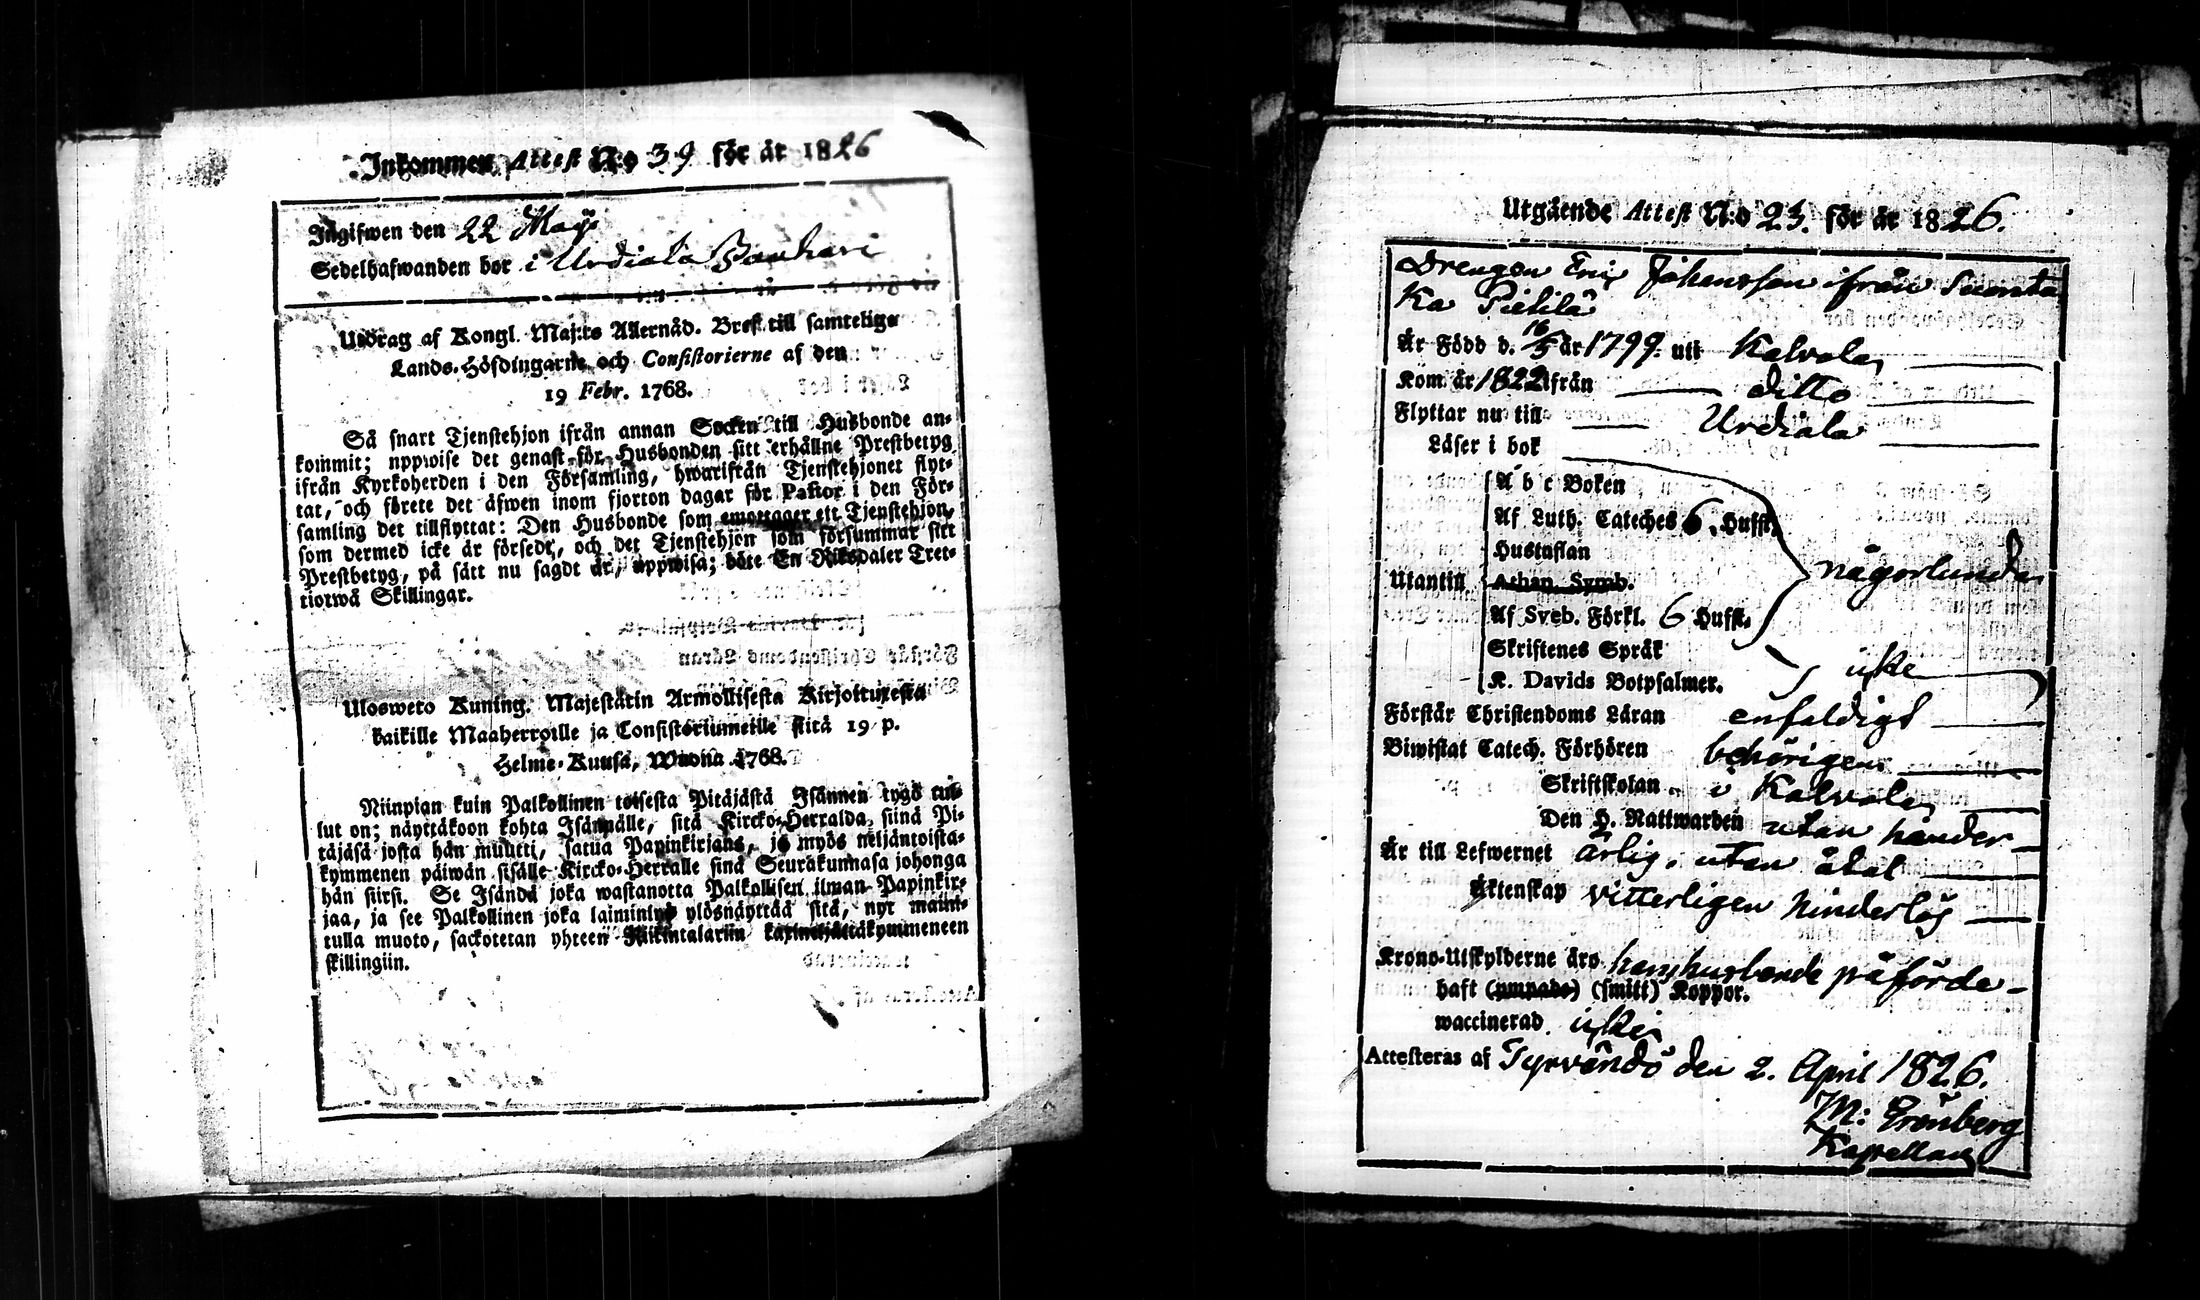 Inkommen Attest N:o 39 för år 1826
Ingifwen den 22 Maji
Sedelhafwanden bor i Urdiala Baukari
Utdrag af Kongl. Maj:ts Allernåd. Bref till samtelige
Lands-Höfdingarne och Consistorierne af den
19 Febr. 1768.
Så snart Tjenstehjon ifrån annan Socken till Husbonde an-
kommit; uppwise det genast för Husbonden sitt erhållne Prestbetyg
ifrån Kyrkoherden i den Församling, hwarifrån Tjenstehjonet flyt-
tat, och förete det äfwen inom fjorton dagar för Pastor i den För-
samling det tillflyttat: Den Husbonde som emottager ett Tjenstehjon,
som dermed icke är försedt, och det Tjenstehjon som försummar sitt
Prestbetyg, på sätt nu sagdt är, uppwisa; böte En Riksdaler Tret-
tiotwå Skillingar.
Ulosweto Kuning. Majestätin Armollisesta Kirjoituxesta
kaikille Maaherroille ja Consistoriumeille siitä 19 p.
Helme-Kuusa, Wuona 1768.
Niinpian kuin Palkollinen toisesta Pitäjästä Isännen tygö tul-
lut on; näyttäkoon kohta Isännälle, sitä Kircko-Herralda, siinä Pi-
täjäsä josta hän muutti, saatua Papinkirjans, ja myös neljäntoista-
kymmenen päiwän sisälle Kircko-Herralle siinä Seurakunnasa johonga
hän siirsi. Se Isändä joka wastanotta Palkollisen ilman Papinkir-
jaa, ja see Palkollinen joka laiminlyö ylösnäyttää sitä, nyt maini-
tulla muoto, sackotetan yhteen Riikintalariin kaxineljättäkymmeneen
skillingiin.
Utgående Attest N:o 23. för år 1826.
Drengen Eric Johansson ifrån Suonta
Ka Pietilä
Är Född d. 16/5 år 1799. uti Kalvola
Kom år 1822 ifrån ditto
Flyttar nu till Urdiala
Läser i bok
A b c Boken
Af Luth. Cateches 6. Hufst.
Hustaflan
Utantill Athan. Symb.
någorlunda
Af Sveb. Förkl. 6 Hufst.
Skriftenes Språk
K. Davids Botpsalmer.
icke
Förstår Christendoms Läran enfaldigt
Biwistat Catech. Förhören behörigen
Skriftskolan i Kalvola
Den H. Nattwarden utan hinder
Är till Lefwernet ärlig, utan åtal
Äktenskap vitterligen hinderlös
Krono-Utskylderne äro hans husbonde påförde
haft (ympade) (smitt) Koppor.
waccinerad icke
Attesteras af Tyrväntö den 2. April 1826.
M: Grönberg
Kapellan